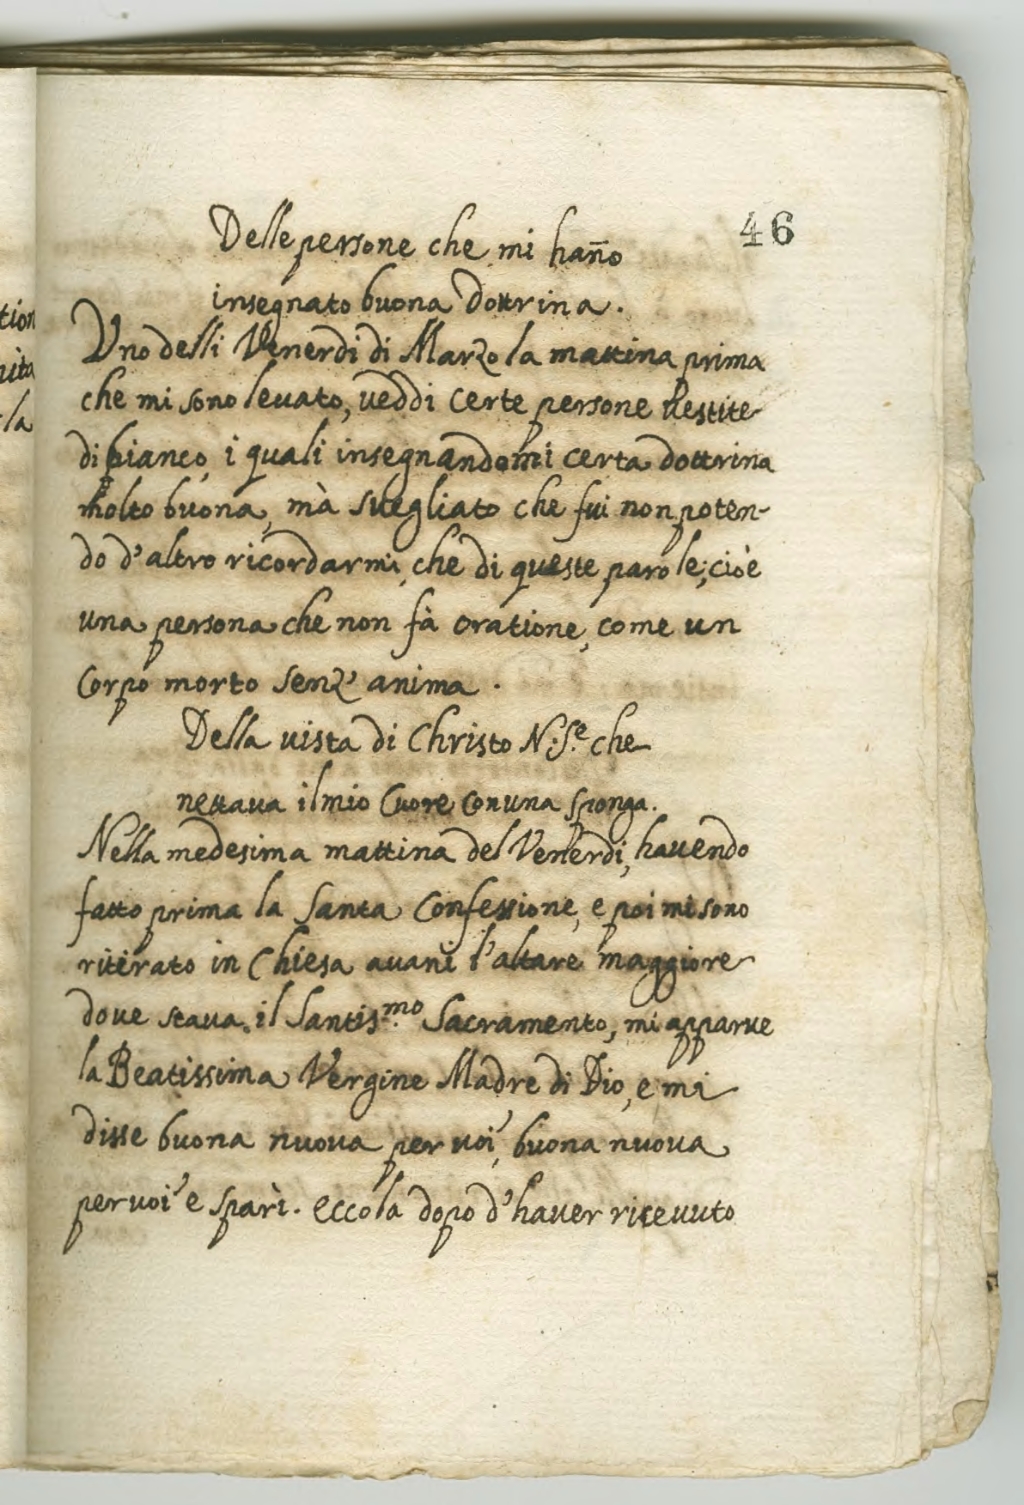 46
Delle persone che mi hañno
insegnato buona dottrina.
Uno delli Venerdi di Marzo la mattina prima
che mi sono leuato, ueddi certe persone uestite
di bianco, i quali insegnandomi certa dottrina
molto buona, mà suegliato che fui non poten-
do d'altro ricordarmi, che di queste parole; cioè
una persona che non fà oratione, come un
Corpo morto senz' anima.
Della uista di Christo N. Sᵉ. che
nettaua il mio Cuore con una sponga.
Nella medesima mattina del Venerdi, hauendo
fatto prima la Santa Confessione, e poi mi sono
ritirato in Chiesa auanĩ l'altare maggiore
doue staua il Santisᵐᵒ. Sacramento, mi apparue
la Beatissima Vergine Madre di Dio, e mi
disse buona nuoua per uoi, buona nuoua
per uoi e sparì. eccola dopo d'hauer riceuuto
tion
uita
la